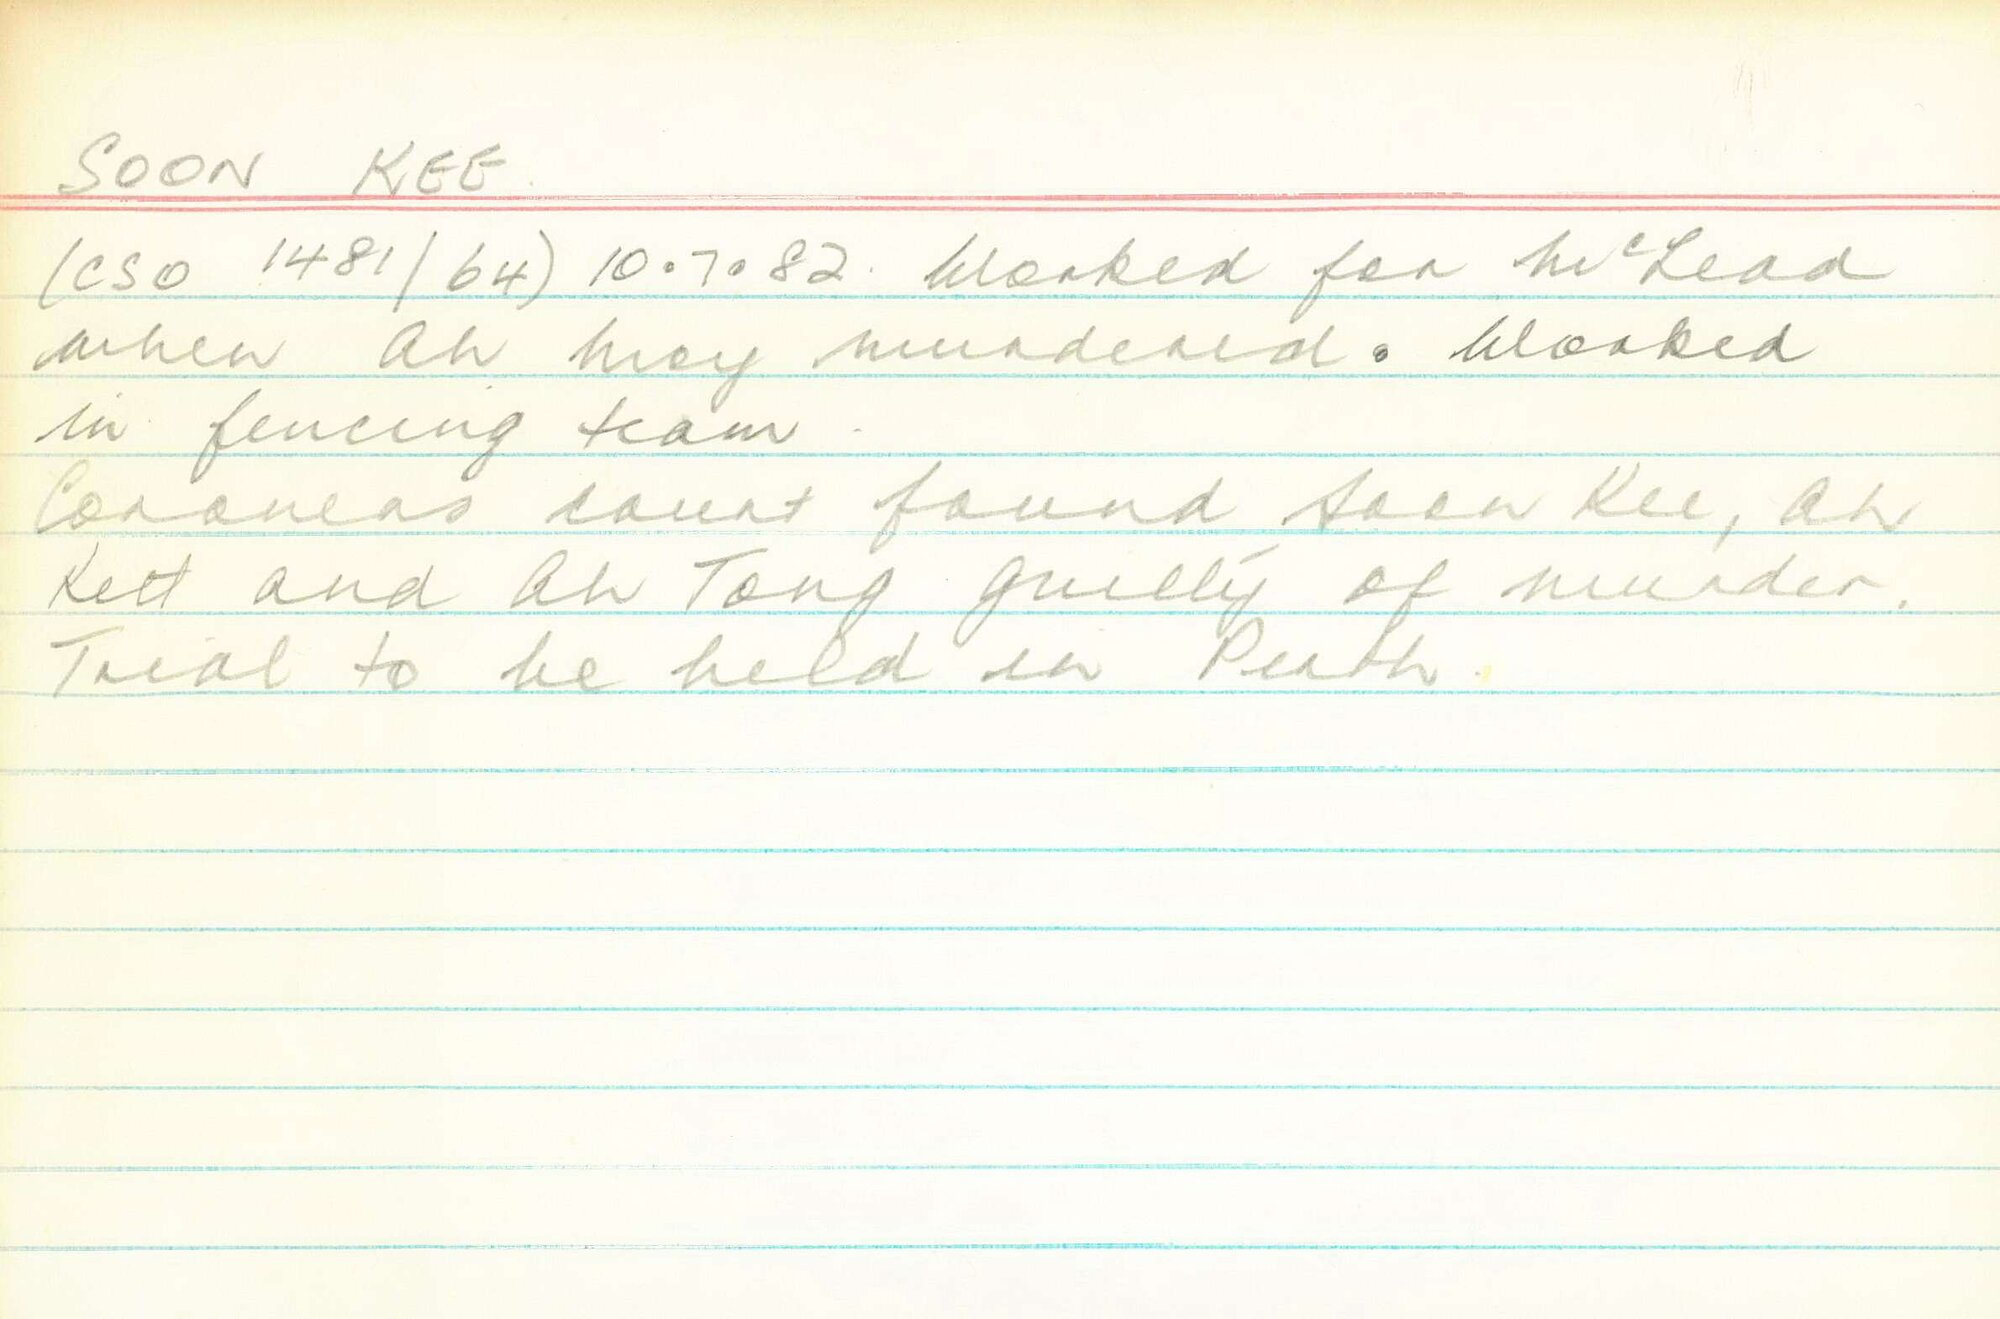 SOON KEE.
(CSO 1481/64) 10.7.82. Worked for McLeod
when Ah Moy murdered. Worked
in fencing team.
Coroners court found Soon Kee, Ah
Kett and Ah Tong guilty of murder.
Trial to be held in Perth.